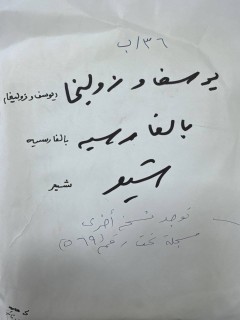 ٣٦/ب
يوسف و زوليخا (يوسف و زوليخا)
بالفارسيه بالفارسيه
شير شير
توجد نسخ أخرى
مسجلة تحت رقم (٥٦٩)